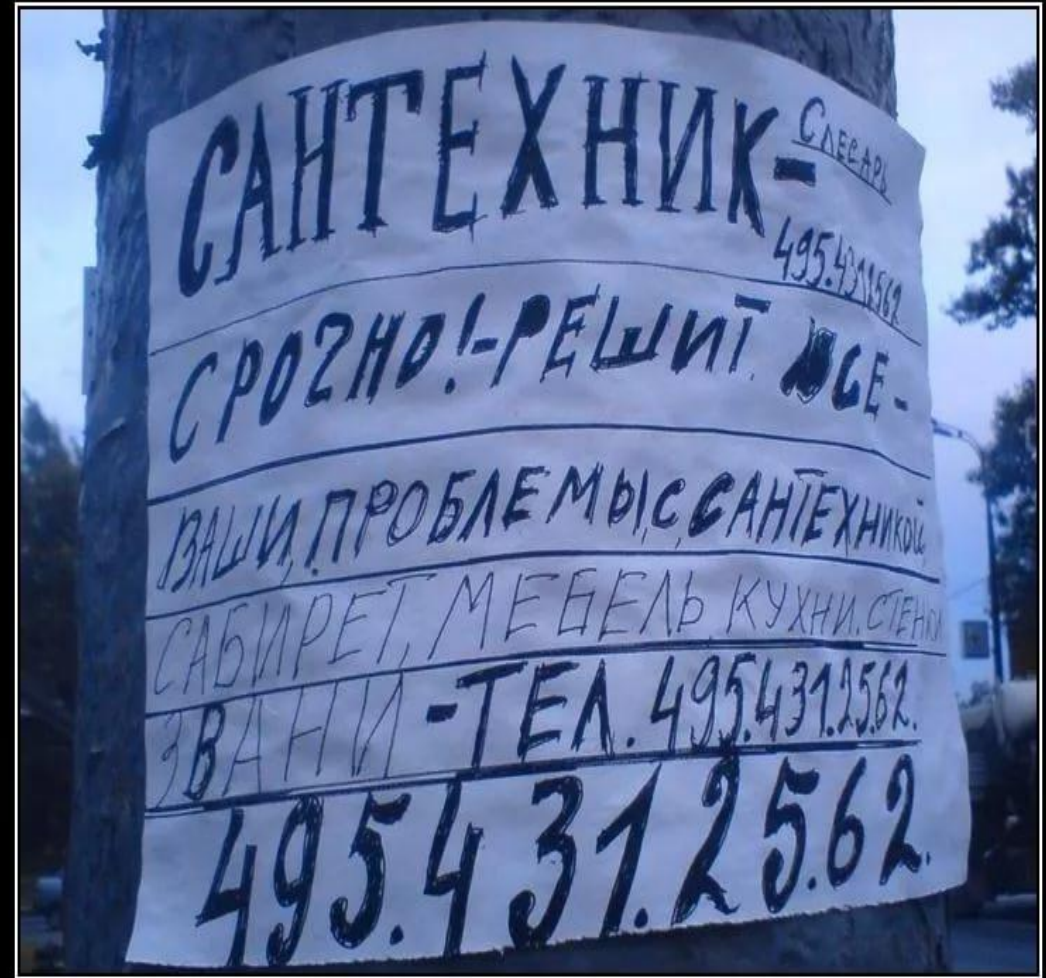 САНТЕХНИК-
Слесарь
495.4312562
СРОЧНО!-РЕШИТ ВСЕ-
ВАШИ, ПРОБЛЕМЫ, С, САНТЕХНИКОЙ
САБИРЕТ, МЕБЕЛЬ КУХНИ. СТЕНКИ
ЗВАНИ-ТЕЛ. 495.431.25.62.
495.431.25.62.